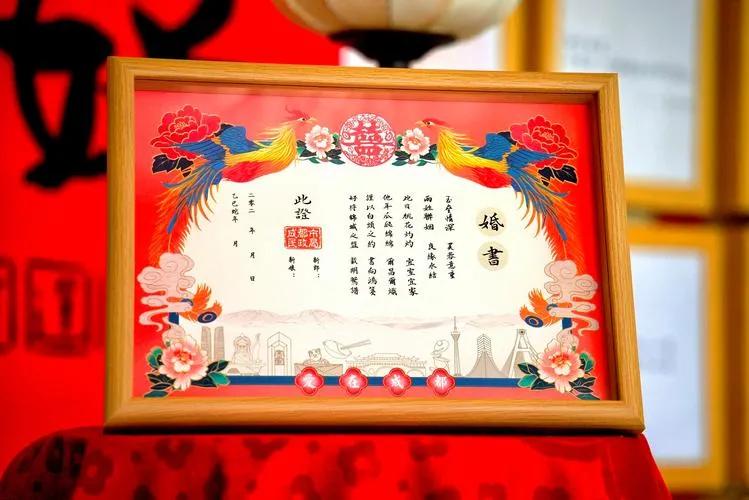 囍
婚書
玉壘情深 芙蓉意重
兩姓聯姻 良緣永結
此日桃花灼灼 宜室宜家
他年瓜瓞綿綿 爾昌爾熾
謹以白頭之約 書向鴻箋
好將錦城之盟 載明鴛譜
此證
新郎：
新娘：
成都市
民政局
二零二 年 月 日
乙巳蛇年 月
爱在成都